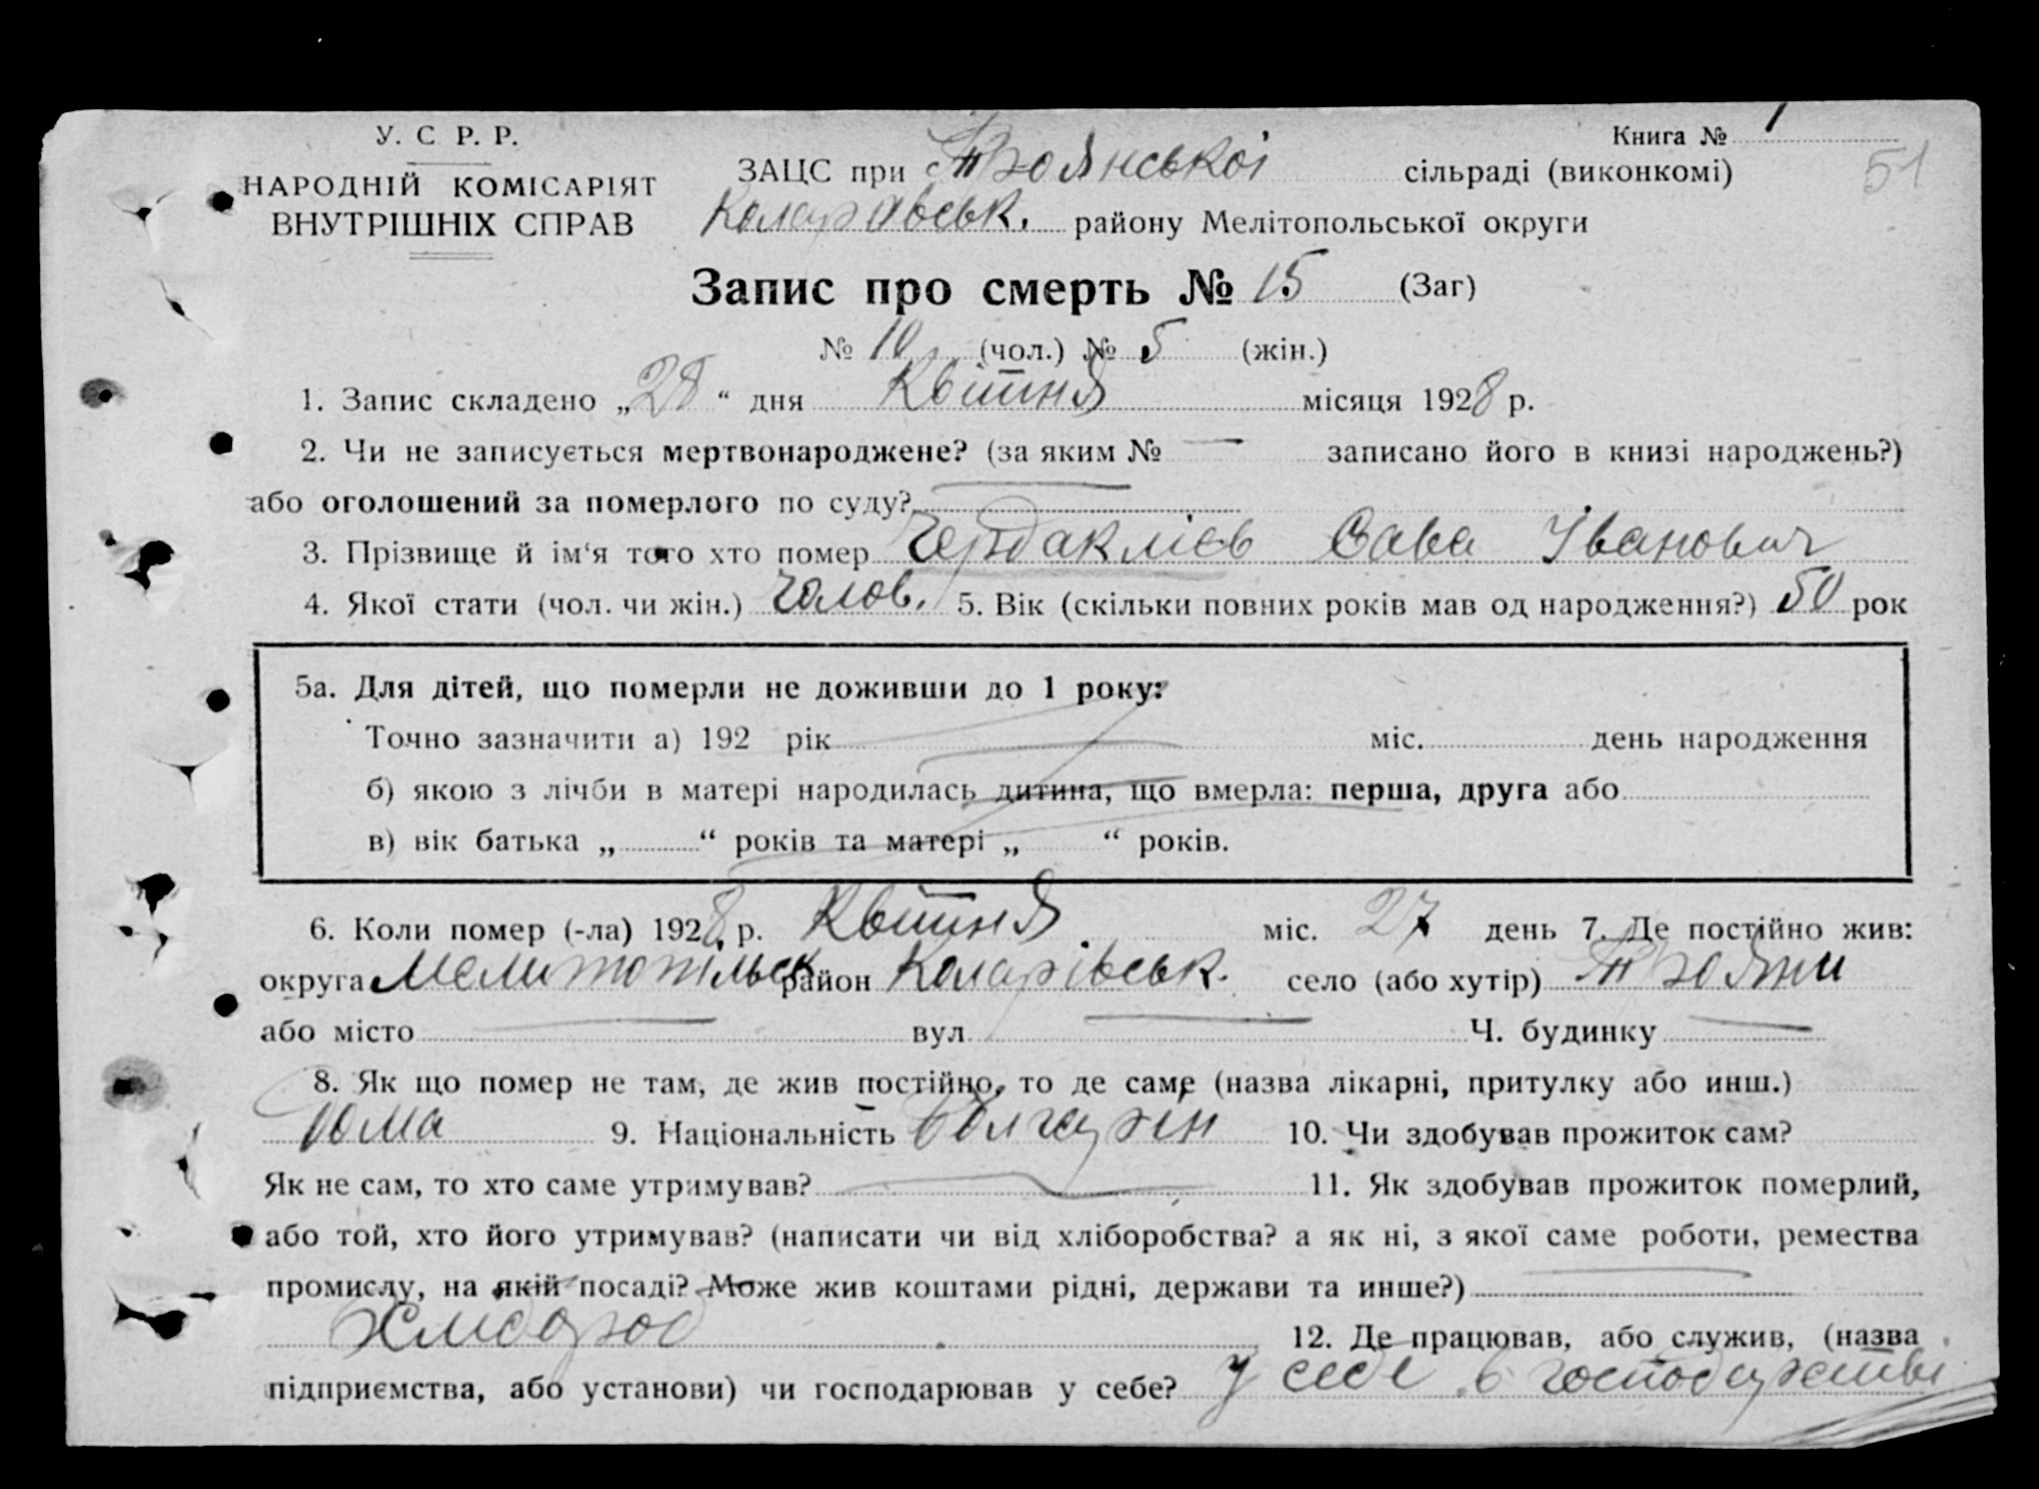 У. С. Р. Р.
Книга № 1
51
НАРОДНІЙ КОМІСАРІЯТ
ВНУТРІШНІХ СПРАВ
ЗАЦС при с. Троянської сільраді (виконкомі)
Коларовськ. району Мелітопольської округи
Запис про смерть № 15 (Заг)
№ 10 (чол.) № 5 (жін.)
1. Запис складено „28“ дня Квітня місяця 1928 р.
2. Чи не записується мертвонароджене? (за яким № — записано його в книзі народжень?)
або оголошений за померлого по суду? —
3. Прізвище й ім‘я того хто помер Чердаклієв Сава Іванович
4. Якої стати (чол. чи жін.) Чолов. 5. Вік (скільки повних років мав од народження?) 50 рок
5а. Для дітей, що померли не доживши до 1 року:
Точно зазначити а) 192 рік міс. день народження
б) якою з лічби в матері народилась дитина, що вмерла: перша, друга або
в) вік батька „ “ років та матері „ “ років.
6. Коли помер (-ла) 1928 р. Квітня міс. 27 день 7. Де постійно жив:
округа Мелитопільськ район Коларівськ. село (або хутір) Трояни
або місто — вул. — Ч. будинку —
8. Як що помер не там, де жив постійно, то де саме (назва лікарні, притулку або инш.)
Дома 9. Національність Болгарін 10. Чи здобував прожиток сам?
Як не сам, то хто саме утримував? — 11. Як здобував прожиток померлий,
або той, хто його утримував? (написати чи від хліборобства? а як ні, з якої саме роботи, ремества
промислу, на якій посаді? Може жив коштами рідні, держави та инше?) —
Хлібороб 12. Де працював, або служив, (назва
підприємства, або установи) чи господарював у себе? У себе в господарстві